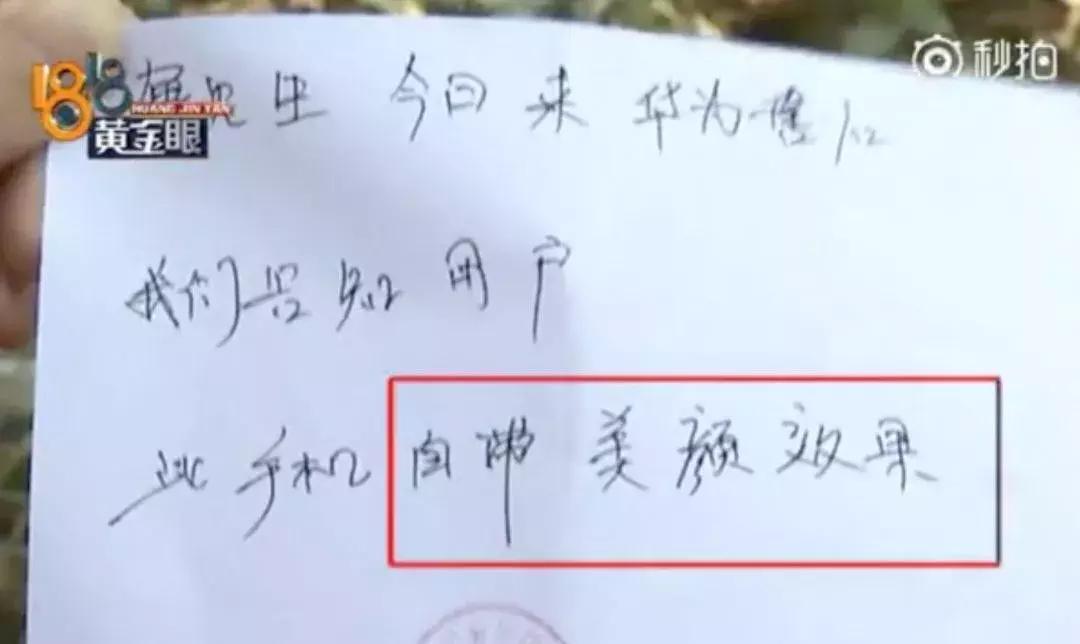 秒拍
1818
HUANG JIN YAN
黄金眼
生 今日来 华为售后
我们告知用户
此手机自带美颜效果